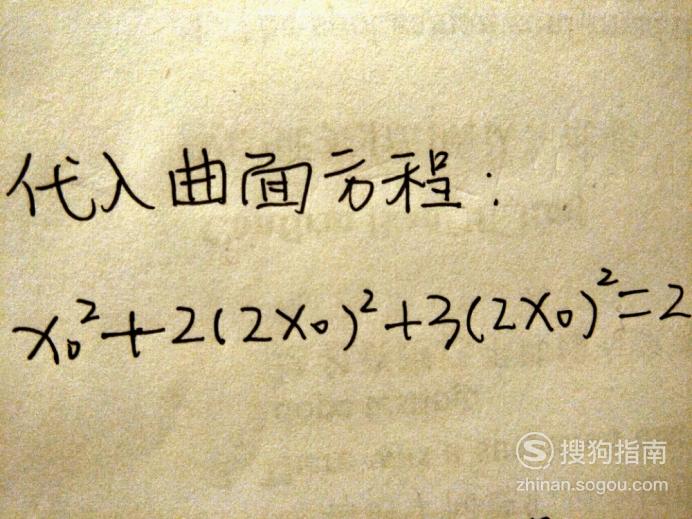 代入曲面方程：
x₀²+2(2x₀)²+3(2x₀)²=2
搜狗指南
zhinan.sogou.com